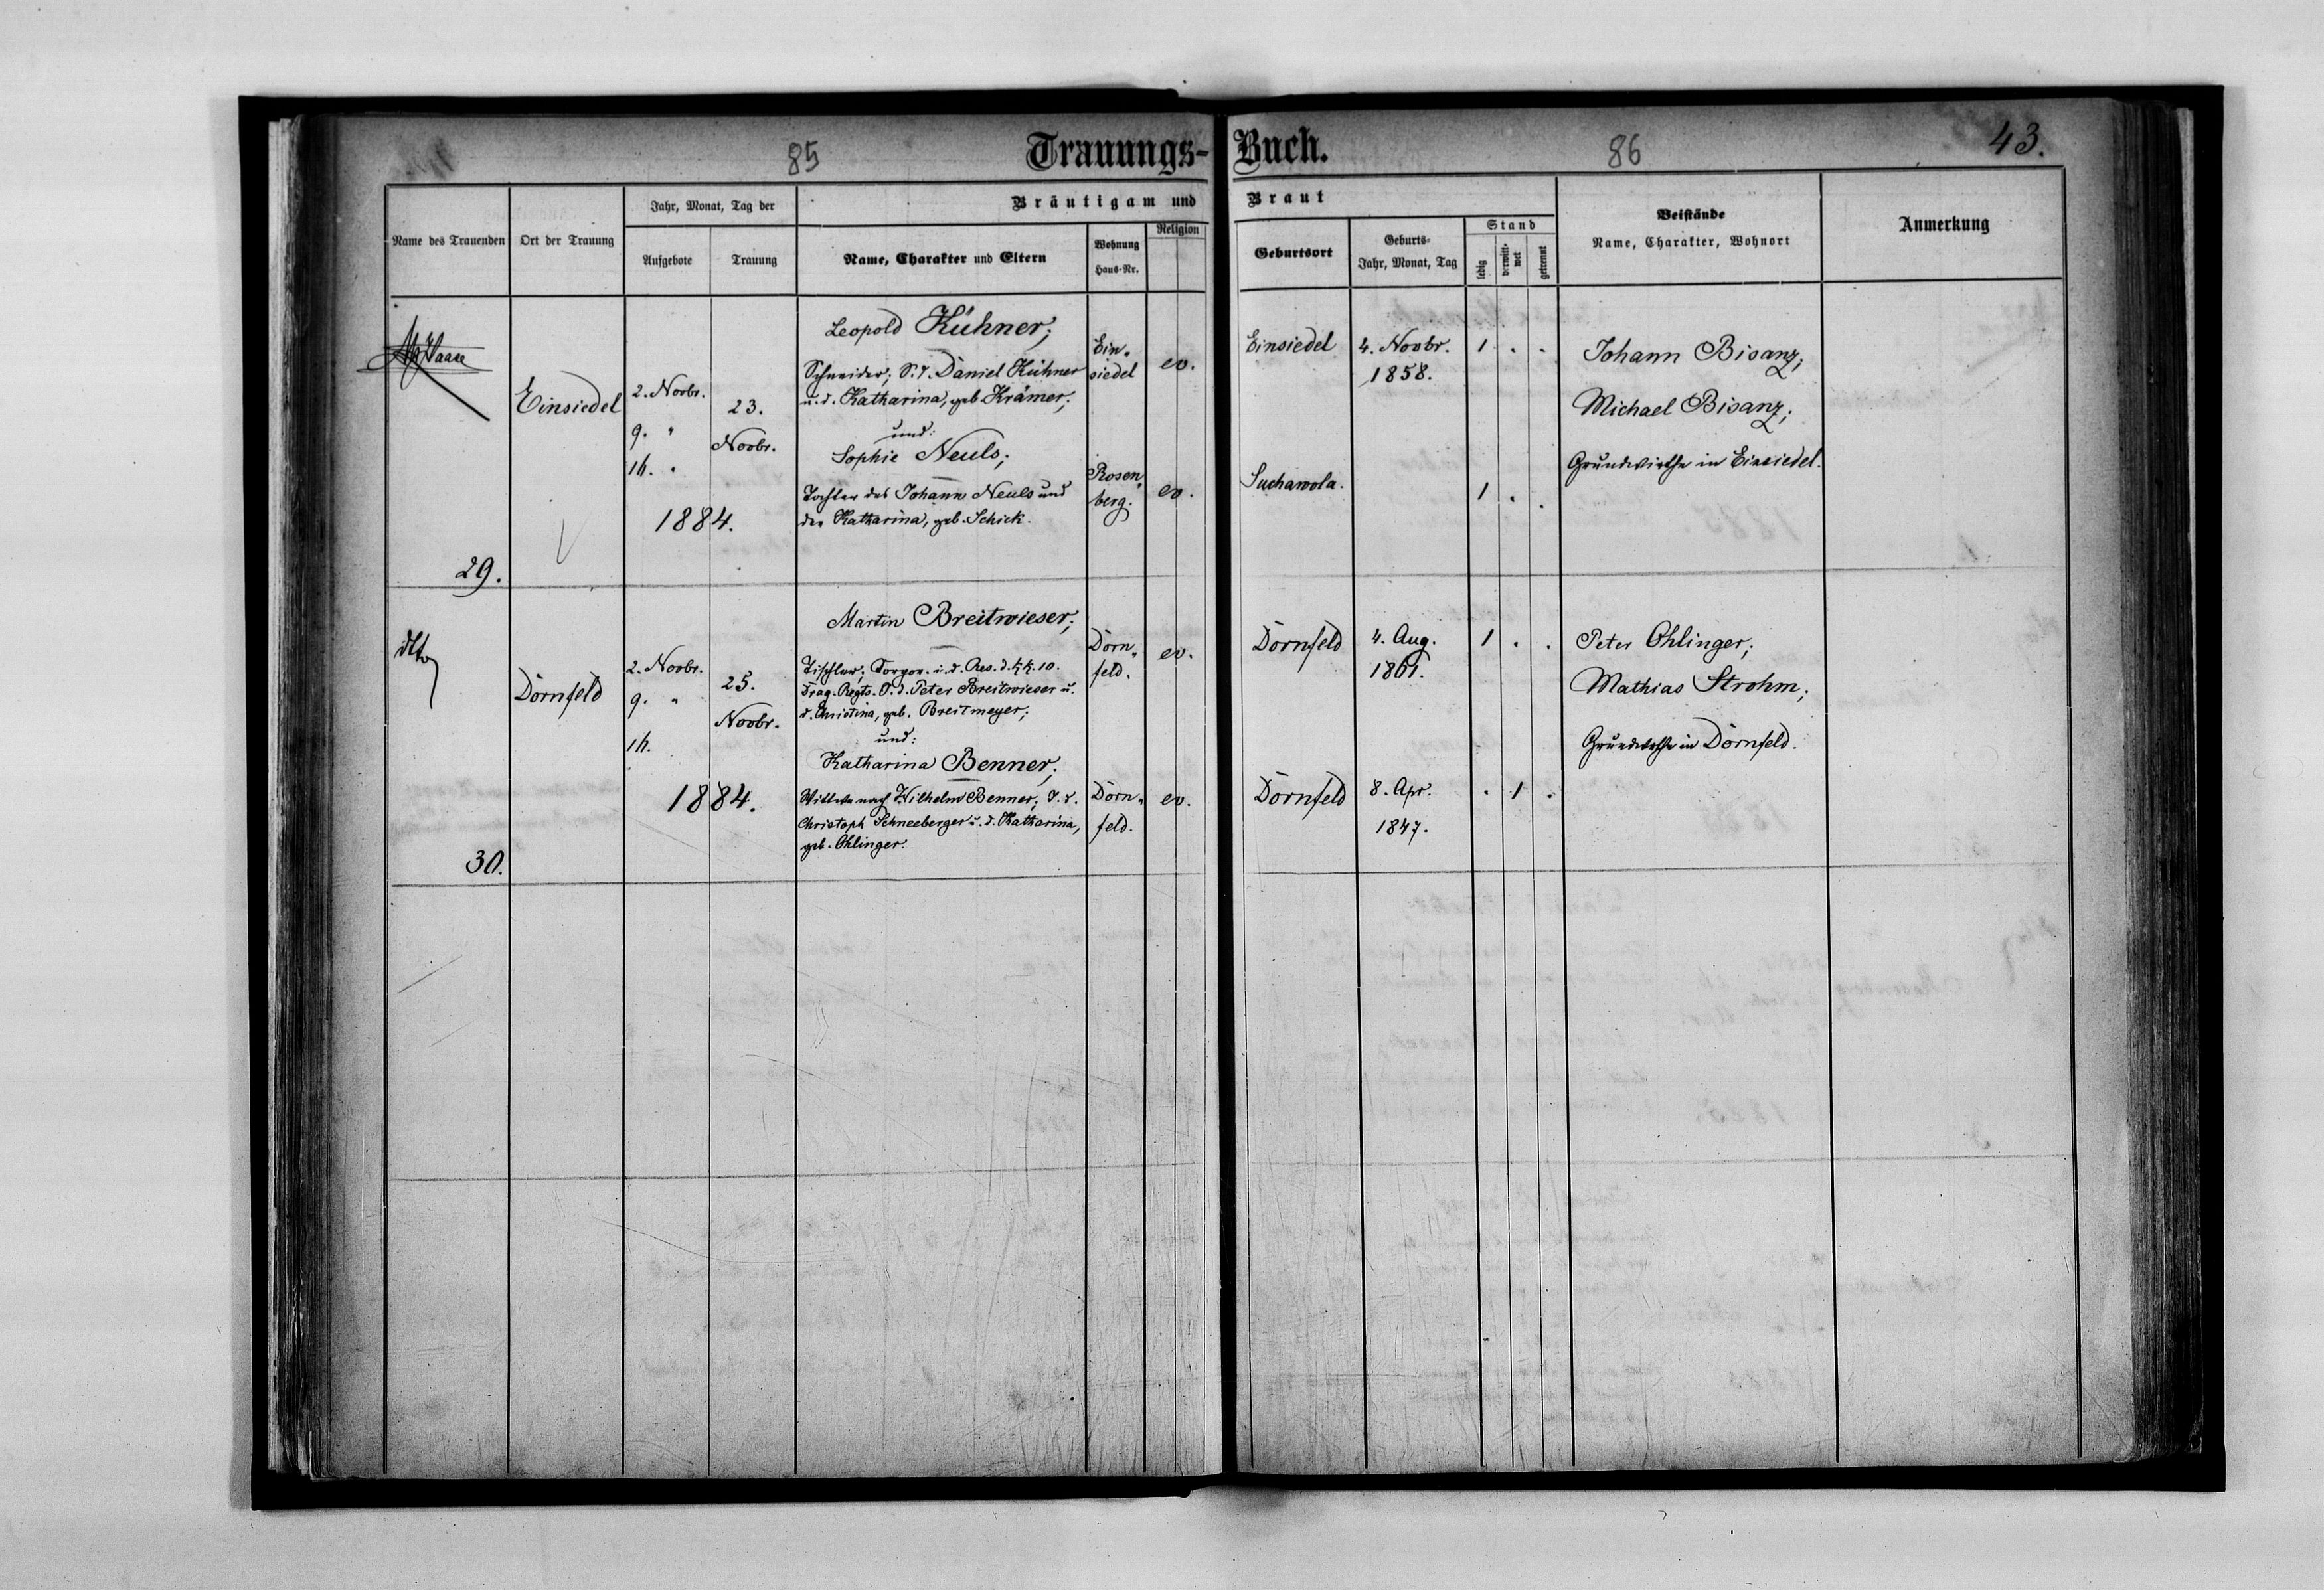 85
Trauungs-Buch.
86
43.
Name des Trauenden
Ort der Trauung
Jahr, Monat, Tag der
Aufgebote
Trauung
Bräutigam und Braut
Name, Charakter und Eltern
Wohnung
Haus-Nr.
Religion
Geburtsort
Geburts-
Jahr, Monat, Tag
Stand
ledig
verwitt-
wet
getrennt
Beistände
Name, Charakter, Wohnort
Anmerkung
Haase
Einsiedel
2. Novbr.
9. "
16. "
23.
Novbr.
1884.
Leopold Kühner;
Schneider; S. d. Daniel Kühner
u. d. Katharina, geb. Krämer;
und:
Sophie Neuls;
Tochter des Johann Neuls und
der Katharina, geb. Schick.
Ein„
siedel
ev.
Rosen„
berg.
ev.
Einsiedel
4. Novbr.
1858.
1 . .
Suchawola.
1 . .
Johann Bisanz;
Michael Bisanz;
Grundwirthe in Einsiedel.
29.
dto
Dornfeld
2. Novbr.
9. "
16.
25.
Novbr.
1884.
Martin Breitwieser;
Tischler; i. d. Res. d. k. k. 10.
Drag. Regts. S. d. Peter Breitwieser u.
d. Christina, geb. Breitmeyer;
und:
Katharina Benner;
Wittwe nach Wilhelm Benner; T. d.
Christoph Schneeberger u. d. Katharina,
geb. Ohlinger.
Dorn„
feld.
ev.
Dorn„
feld.
ev.
Dornfeld
4. Aug.
1861.
1 . .
Dornfeld
8. Apr.
1847.
. 1 .
Peter Ohlinger;
Mathias Strohm;
Grundwirthe in Dornfeld.
30.